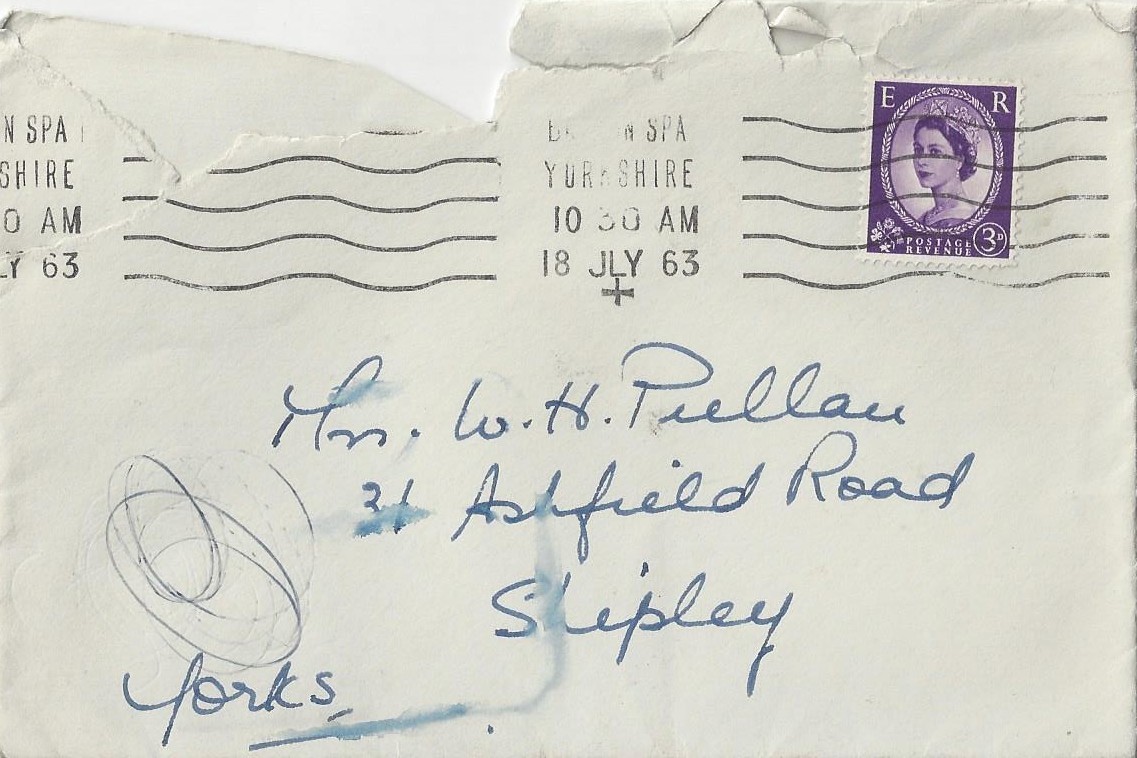 N SPA
SHIRE
0 AM
LY 63
N SPA
YORKSHIRE
10 30 AM
18 JLY 63
E R
POSTAGE
REVENUE 3D
Mrs. W. H. Pullan
21 Ashfield Road
Shipley
Yorks.